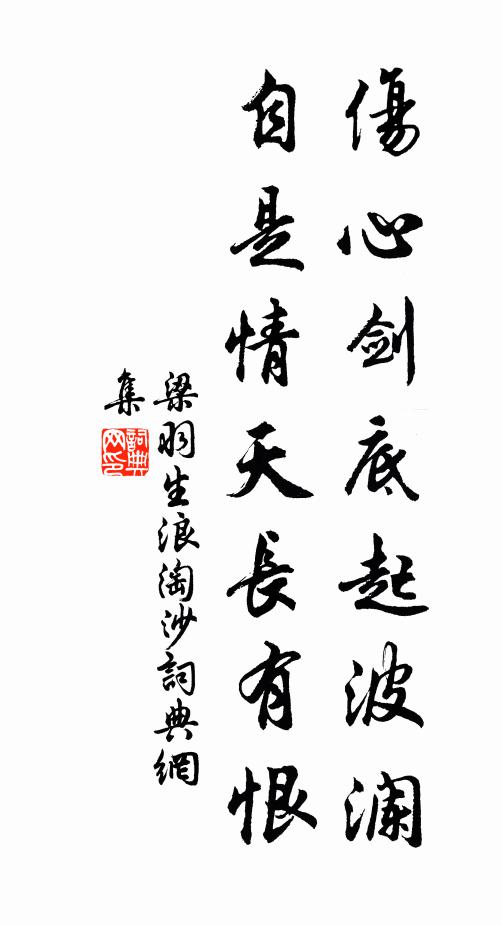 傷心劍底起波瀾
自是情天長有恨
梁羽生浪淘沙詞典網
集
詞典
网印